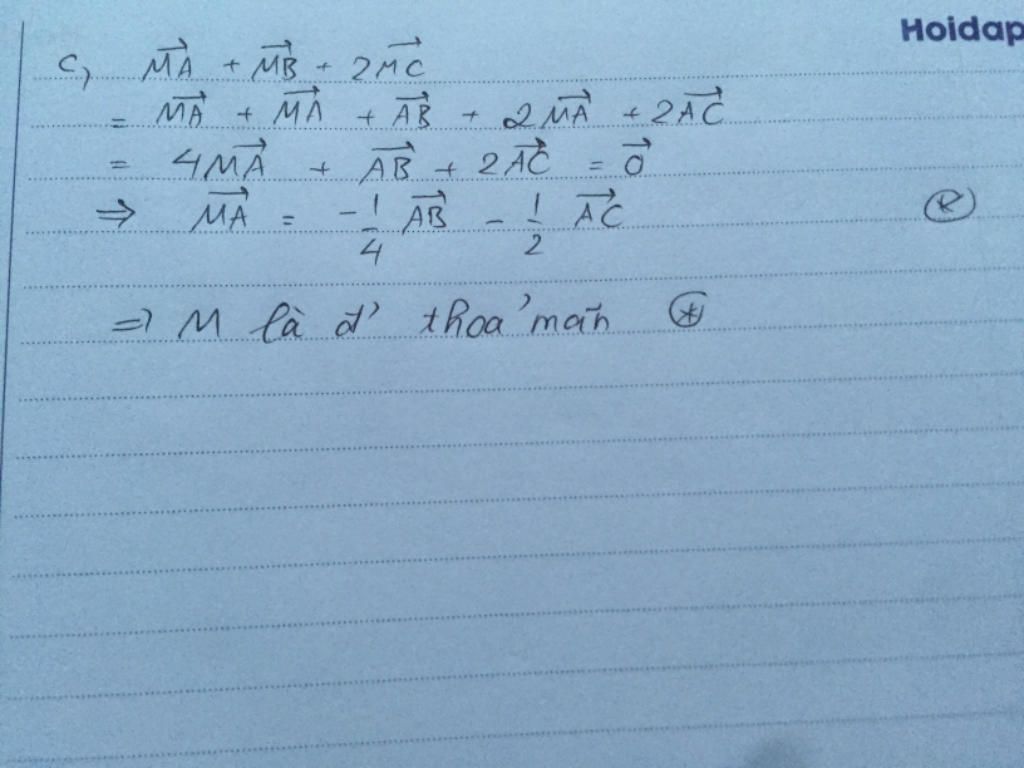 Hoidap
c, $\overrightarrow{MA} + \overrightarrow{MB} + 2\overrightarrow{MC}$
$= \overrightarrow{MA} + \overrightarrow{MA} + \overrightarrow{AB} + 2\overrightarrow{MA} + 2\overrightarrow{AC}$
$= 4\overrightarrow{MA} + \overrightarrow{AB} + 2\overrightarrow{AC} = \overrightarrow{0}$
$\Rightarrow \overrightarrow{MA} = -\frac{1}{4}\overrightarrow{AB} - \frac{1}{2}\overrightarrow{AC}$ ⊛
$\Rightarrow$ M là đ' thoả mãn ⊛